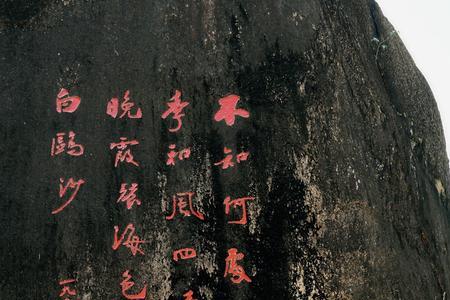 不知何處
秀和風四
晚霞海色
白鷗沙